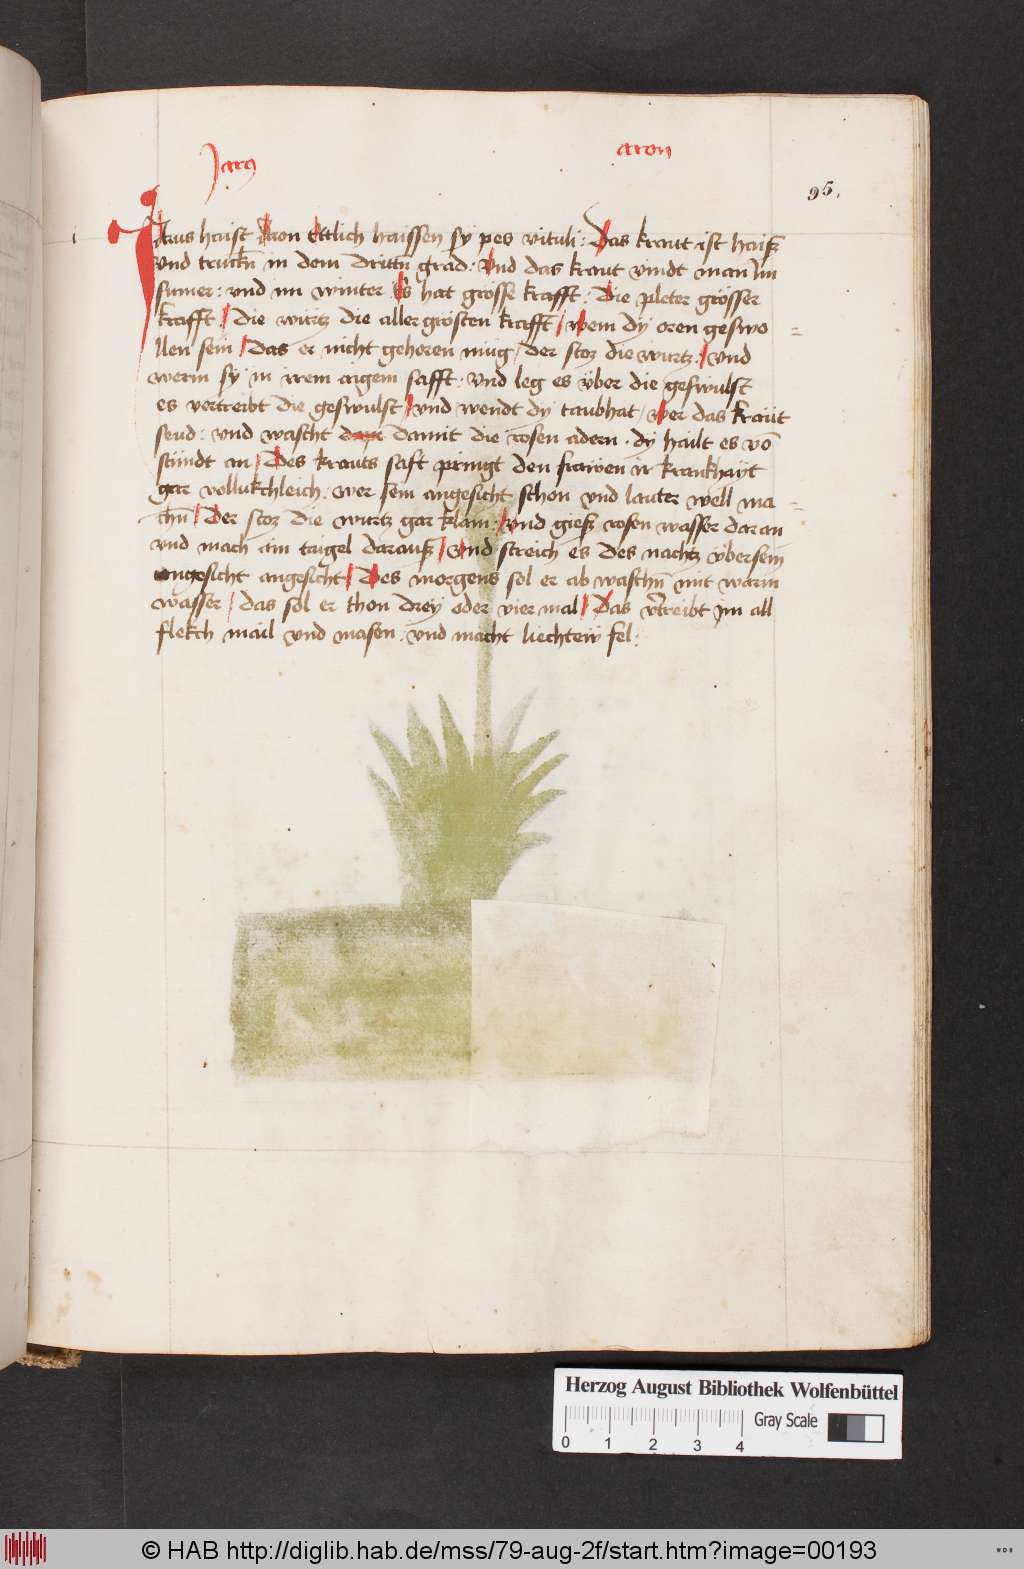 Jarus aron
95.
Iarus haist Aaron Ettlich haissen sy pes vituli: Das kraut ist haiß
vnd truckñ in dem drittñ grad: Vnd das kraut vindt man Im
sumer: vnd im winter Es hat grosse krafft: Die pleter grösser
krafft / die wurtz die aller grösten krafft / wem dy oren geswo=
llen sein / Das er nicht gehoren müg / der stoz die wurtz / vnd
werm sy in irem aigem safft: vnd leg es vber die geswulst
es vertreibt die geswulst / vnd wendt dy taubhat / wer das kraüt
seud: vnd wascht damit die rosen adern. dy hailt es vō
stündt an / Des krauts saft pringt den frawen ir krankhayt
gar vollukchleich. wer sein angesicht schon vnd lauter well ma=
chñ / Der stoz die wurtz gar klain / vnd gieß rosen wasser daran
vnd mach ain taigel darauß / vnd streich es des nachtz vbersein
angesicht angesicht / Des morgens sol er ab waschñ mit warm
wasser / das sol er thon drey oder vier mal / Das vtreibt im all
flekch mail vnd masen. vnd macht liechtew fel:
Herzog August Bibliothek Wolfenbüttel
Gray Scale
0 1 2 3 4
© HAB http://diglib.hab.de/mss/79-aug-2f/start.htm?image=00193